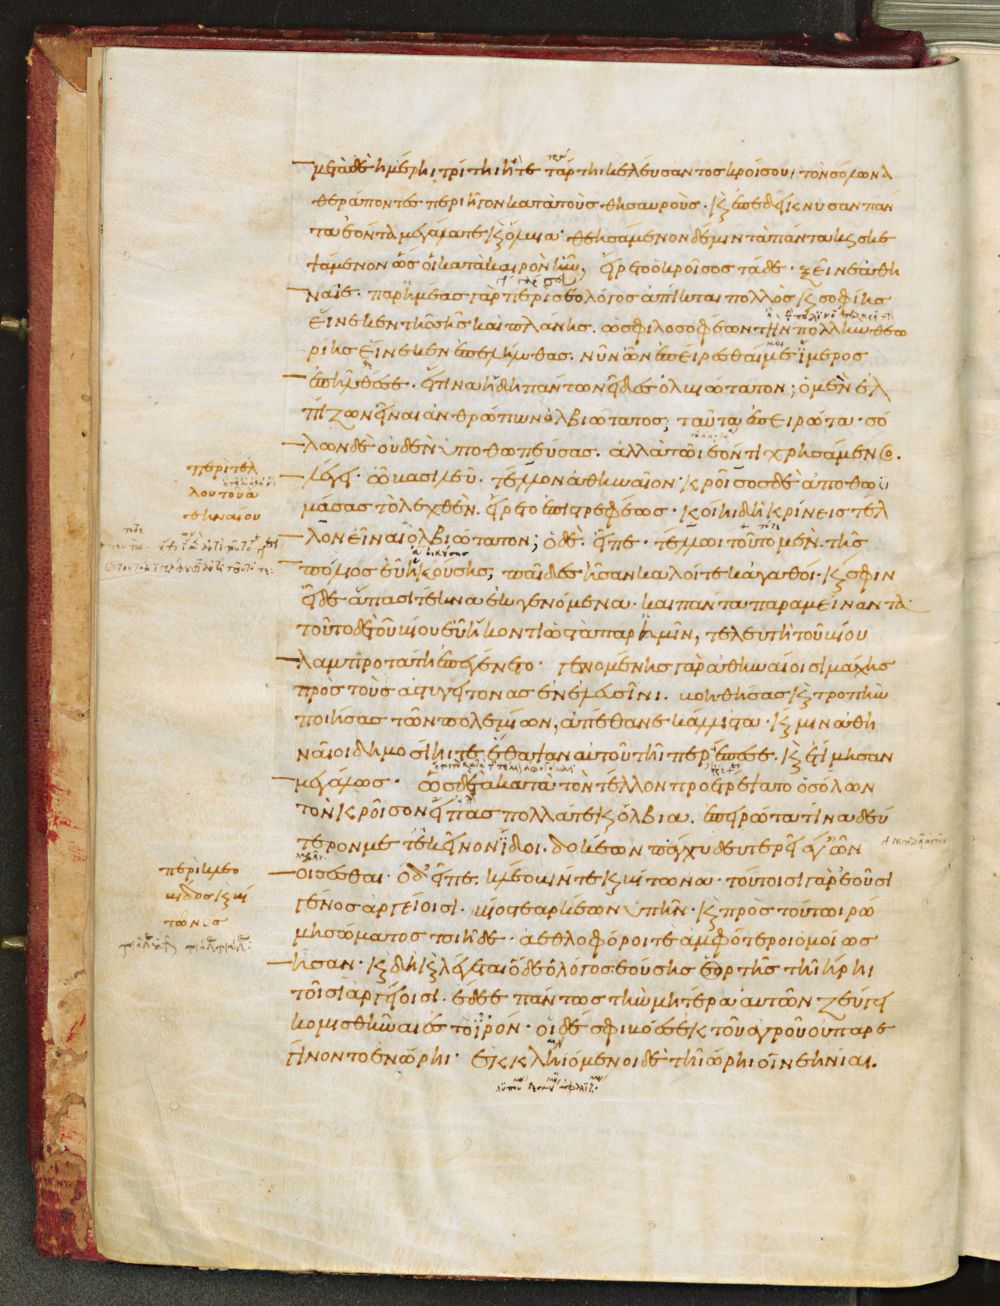 μετὰ δὲ ἡμέρηι τρίτηι ἢ τετάρτηι κελεύσαντος κροίσου, τὸν σόλωνα
θεράποντες περιῆγον κατὰ τοὺς θησαυρούς. καὶ ἐπεδείκνυσαν πάν
τα ἐόντα μεγάλα τε καὶ ὄλβια. θεησάμενον δέ μιν τὰ πάντα καὶ σκε
ψάμενον ὥς οἱ κατὰ καιρὸν ἦν, εἴρετο ὁ κροῖσος τάδε. ξεῖνε ἀθη
ναῖε. παρ' ἡμέας γὰρ περὶ σέο λόγος ἀπῖκται πολλὸς καὶ σοφίης
εἵνεκεν τῆς σῆς καὶ πλάνης. ὡς φιλοσοφέων γῆν πολλὴν θεω
ρίης εἵνεκεν ἐπελήλυθας. νῦν ὦν ἐπειρέσθαί με ἵμερος
ἐπῆλθέ σε. εἴ τινα ἤδη πάντων εἶδες ὀλβιώτατον; ὁ μὲν ἐλ
πίζων εἶναι ἀνθρώπων ὀλβιώτατος, ταῦτα ἐπειρώτα. σό
λων δὲ οὐδὲν ὑποθωπεύσας. ἀλλὰ τῶι ἐόντι χρησάμενος
περὶ τέλ
λου τοῦ ἀ
θηναίου
λέγει. ὦ βασιλεῦ. τέλλον ἀθηναῖον. κροῖσος δὲ ἀποθωυ
μάσας τὸ λεχθὲν. εἴρετο ἐπιστρεφέως. κοίηι δὴ κρίνεις τέλ
λον εἶναι ὀλβιώτατον; ὁ δὲ. εἶπε. τέλλωι τοῦτο μὲν. τῆς
πόλιος εὖ ἡκούσης, παῖδες ἦσαν καλοί τε κἀγαθοί. καί σφιν
εἶδε ἅπασι τέκνα ἐκγενόμενα. καὶ πάντα παραμείναντα.
τοῦτο δὲ τοῦ βίου εὖ ἥκοντι ὡς τὰ παρ' ἡμῖν, τελευτὴ τοῦ βίου
λαμπροτάτη ἐπεγένετο. γενομένης γὰρ ἀθηναίοισι μάχης
πρὸς τοὺς ἀστυγείτονας ἐν ἐλευσῖνι. βοηθήσας καὶ τροπὴν
ποιήσας τῶν πολεμίων, ἀπέθανε κάλλιστα. καί μιν ἀθη
ναῖοι δημοσίηι τε ἔθαψαν αὐτοῦ τῆι περ ἔπεσε. καὶ ἐτίμησαν
μεγάλως. ὡς δὲ τὰ κατὰ τὸν τέλλον προετρέψατο ὁ σόλων
τὸν κροῖσον εἴπας πολλά τε καὶ ὄλβια. ἐπειρώτα τίνα δεύ
τερον μετ' ἐκεῖνον ἴδοι. δοκέων πάγχυ δευτερεῖα γῶν
περὶ κλεό
βιδος καὶ βί
τωνος
οἴσεσθαι. ὁ δ' εἶπε. κλέοβίν τε καὶ βίτωνα. τούτοισι γὰρ ἐοῦσι
γένος ἀργείοισι. βίος τε ἀρκέων ὑπῆν. καὶ πρὸς τούτωι ῥώ
μη σώματος τοιήδε. ἀεθλοφόροι τε ἀμφότεροι ὁμοίως
ἦσαν. καὶ δὴ καὶ λέγεται ὅδε ὁ λόγος ἐούσης ἑορτῆς τῆι ἥρηι
τοῖσι ἀργείοισι. ἔδεε πάντως τὴν μητέρα αὐτῶν ζεύγεϊ
κομισθῆναι ἐς τὸ ἱρόν. οἱ δέ σφι βόες ἐκ τοῦ ἀγροῦ οὐ παρε
γίνοντο ἐν ὥρηι. ἐκκληιόμενοι δὲ τῆι ὥρηι οἱ νεηνίαι.